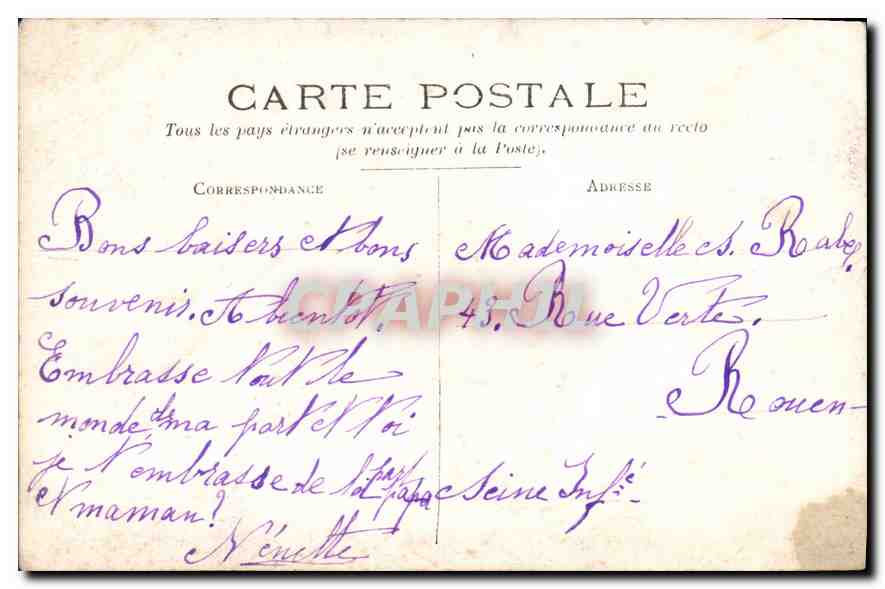 CARTE POSTALE
Tous les pays étrangers n'acceptent pas la correspondance au recto
(se renseigner à la Poste).
CORRESPONDANCE
Bons baisers et bons
souvenir. A bientôt.
Embrasse tout le
monde de ma part et toi
je t'embrasse de la part papa
et maman?
Nénette
ADRESSE
Mademoiselle S. Rabel
43. Rue Verte.
Rouen
Seine Infre
CPAPHIL